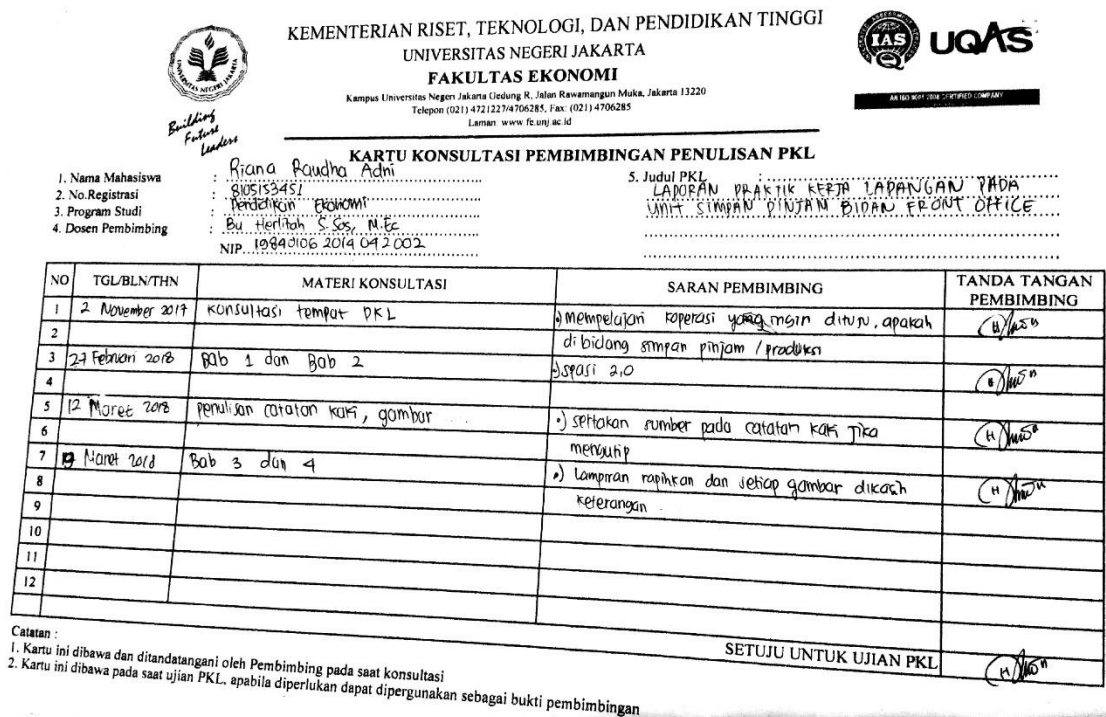 KEMENTERIAN RISET, TEKNOLOGI, DAN PENDIDIKAN TINGGI
UNIVERSITAS NEGERI JAKARTA
FAKULTAS EKONOMI
Kampus Universitas Negeri Jakarta Gedung R, Jalan Rawamangun Muka, Jakarta 13220
Telepon (021) 4721227/4706285, Fax: (021) 4706285
Laman: www.fe.unj.ac.id
UNIVERSITAS NEGERI JAKARTA
Building
Future
Leaders
IAS
UQAS
AN ISO 9001:2008 CERTIFIED COMPANY
KARTU KONSULTASI PEMBIMBINGAN PENULISAN PKL
1. Nama Mahasiswa : Riana Raudha Adni
2. No.Registrasi : 8105153451
3. Program Studi : Pendidikan Ekonomi
4. Dosen Pembimbing : Bu Herlitah S.Sos, M.Ec
NIP. 19840106 2014 042002
5. Judul PKL :
LAPORAN PRAKTIK KERJA LAPANGAN PADA
UNIT SIMPAN PINJAM BIDAN FRONT OFFICE
NO TGL/BLN/THN MATERI KONSULTASI SARAN PEMBIMBING TANDA TANGAN PEMBIMBING
1 2 November 2017 Konsultasi tempat PKL •) mempelajari koperasi yang ingin dituju, apakah
2 di bidang simpan pinjam / produksi
3 27 Februari 2018 Bab 1 dan Bab 2 •) spasi 2,0
4
5 12 Maret 2018 penulisan catatan kaki, gambar •) sertakan sumber pada catatan kaki jika
6 mengutip
7 Maret 2018 Bab 3 dan 4 •) Lampiran rapihkan dan setiap gambar dikasih
8 keterangan
9
10
11
12
SETUJU UNTUK UJIAN PKL
Catatan :
1. Kartu ini dibawa dan ditandatangani oleh Pembimbing pada saat konsultasi
2. Kartu ini dibawa pada saat ujian PKL, apabila diperlukan dapat dipergunakan sebagai bukti pembimbingan